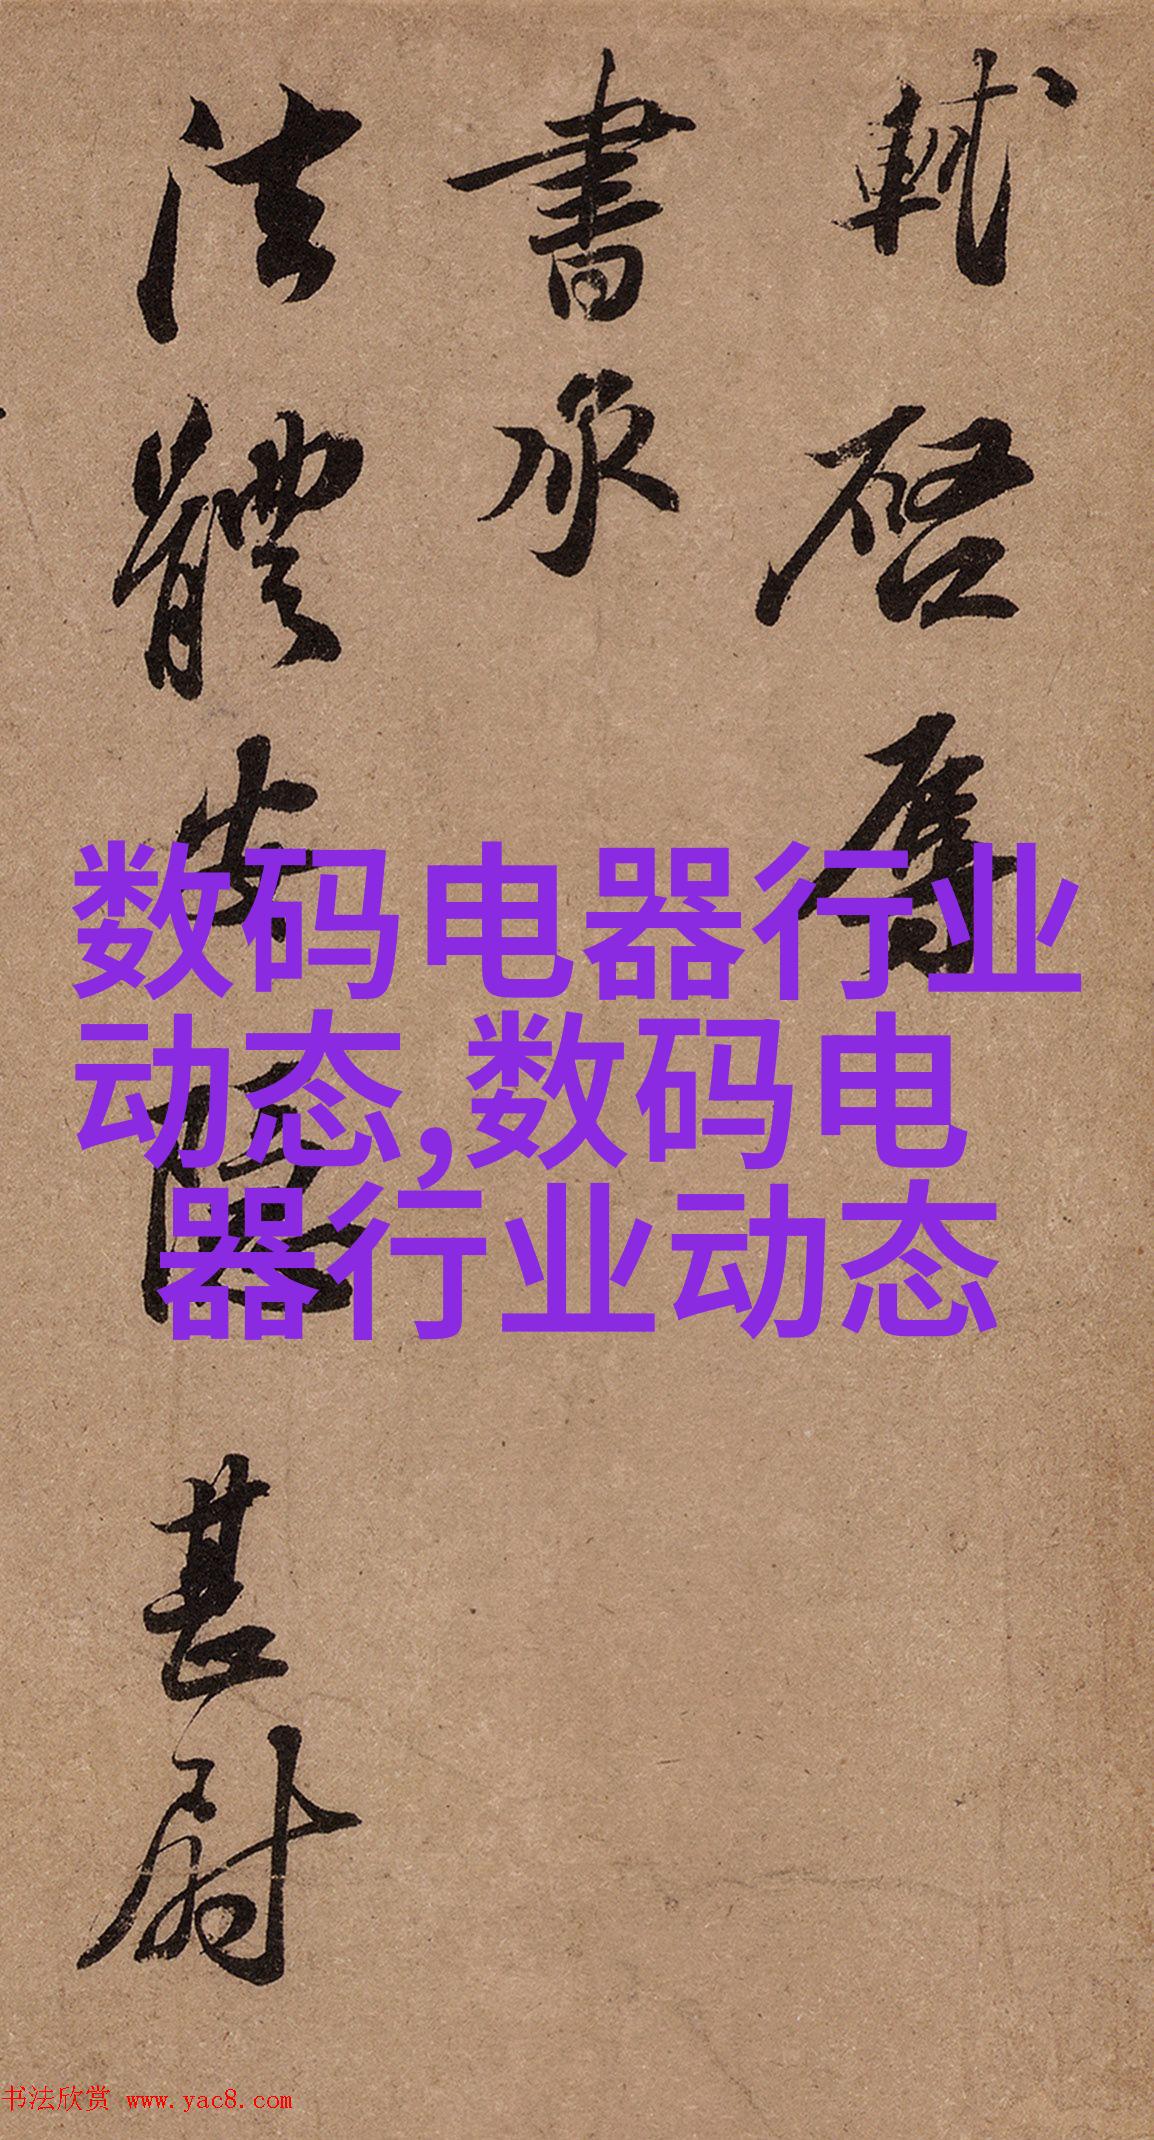 軾啓辱
書承
法體安隱甚慰
数码电器行业
动态,数码电
器行业动态
书法欣赏 www.yac8.com